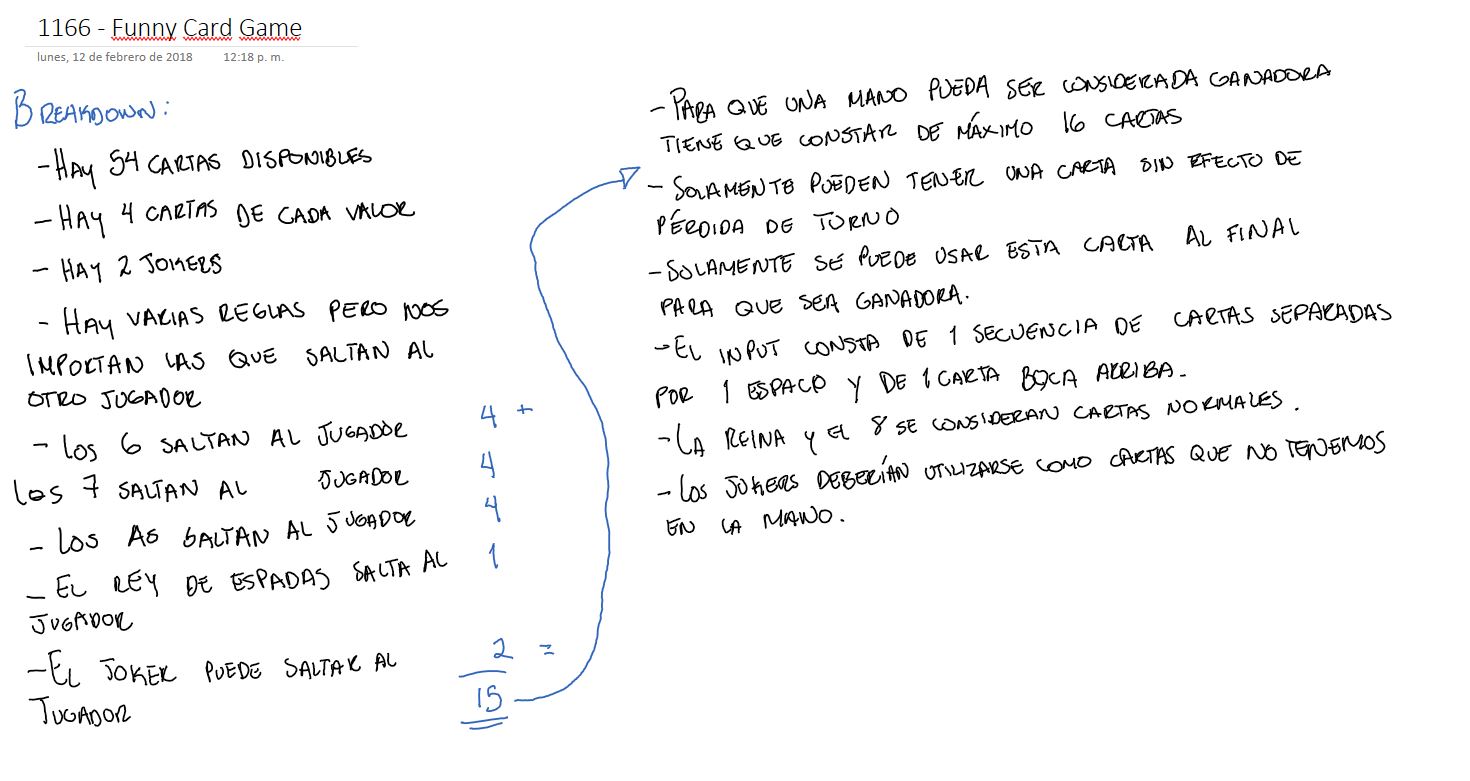 1166 - Funny Card Game
lunes, 12 de febrero de 2018 12:18 p. m.
BREAKDOWN:
- HAY 54 CARTAS DISPONIBLES
- HAY 4 CARTAS DE CADA VALOR
- HAY 2 JOKERS
- HAY VARIAS REGLAS PERO NOS
IMPORTAN LAS QUE SALTAN AL
OTRO JUGADOR
- LOS 6 SALTAN AL JUGADOR 4 +
LOS 7 SALTAN AL JUGADOR 4
- LOS AS SALTAN AL JUGADOR 4
- EL REY DE ESPADAS SALTA AL 1
JUGADOR
- EL JOKER PUEDE SALTAR AL 2 =
JUGADOR 15
- PARA QUE UNA MANO PUEDA SER CONSIDERADA GANADORA
TIENE QUE CONSTAR DE MÁXIMO 16 CARTAS
- SOLAMENTE PUEDEN TENER UNA CARTA SIN EFECTO DE
PÉRDIDA DE TURNO
- SOLAMENTE SE PUEDE USAR ESTA CARTA AL FINAL
PARA QUE SEA GANADORA.
- EL INPUT CONSTA DE 1 SECUENCIA DE CARTAS SEPARADAS
POR 1 ESPACO Y DE 1 CARTA BOCA ARRIBA.
- LA REINA Y EL 8 SE CONSIDERAN CARTAS NORMALES.
- LOS JOKERS DEBERÍAN UTILIZARSE COMO CARTAS QUE NO TENEMOS
EN LA MANO.